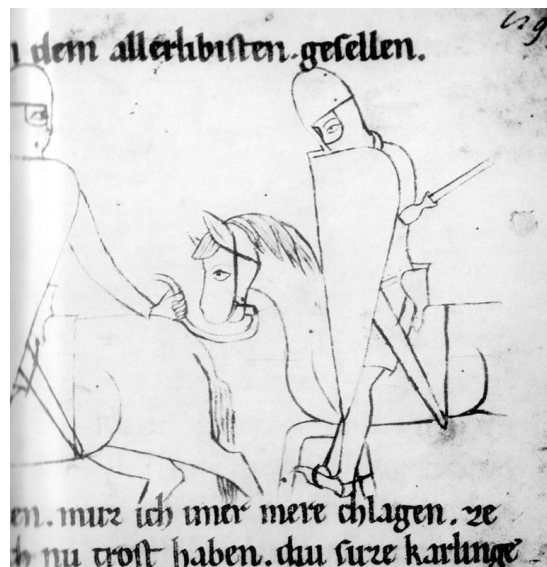 dem allerlibisten gesellen.
en. muz ich imer mere chlagen. ze
h nu trost haben. diu suze karlinge